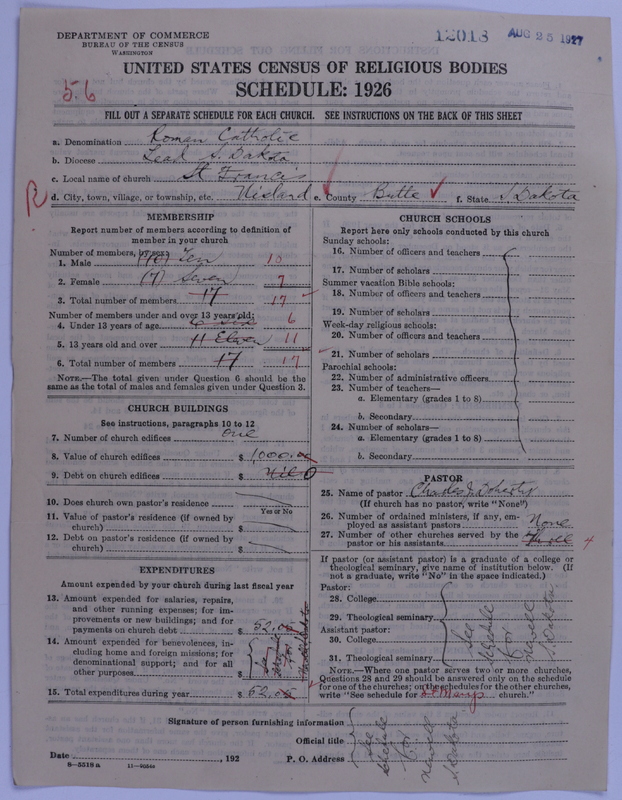 DEPARTMENT OF COMMERCE
BUREAU OF THE CENSUS
WASHINGTON
12013 AUG 25 1927
UNITED STATES CENSUS OF RELIGIOUS BODIES
SCHEDULE: 1926
56
FILL OUT A SEPARATE SCHEDULE FOR EACH CHURCH. SEE INSTRUCTIONS ON THE BACK OF THIS SHEET
a. Denomination Roman Catholic
b. Diocese Lead S. Dakota
c. Local name of church St Francis
R d. City, town, village, or township, etc. Nisland e. County Butte f. State S. Dakota
MEMBERSHIP
Report number of members according to definition of
member in your church
Number of members, by sex:
1. Male (10) Ten 10
2. Female (7) Seven 7
3. Total number of members 17 17
Number of members under and over 13 years old:
4. Under 13 years of age 6 six 6
5. 13 years old and over 11 Eleven 11
6. Total number of members 17 17
NOTE.—The total given under Question 6 should be the
same as the total of males and females given under Question 3.
CHURCH BUILDINGS
See instructions, paragraphs 10 to 12
7. Number of church edifices one
8. Value of church edifices $ 1000.00
9. Debt on church edifices $ Nil 0
10. Does church own pastor's residence
Yes or No
11. Value of pastor's residence (if owned by
church) $
12. Debt on pastor's residence (if owned by
church) $
EXPENDITURES
Amount expended by your church during last fiscal year
13. Amount expended for salaries, repairs,
and other running expenses; for im-
provements or new buildings; and for
payments on church debt $ 52.00
14. Amount expended for benevolences, in-
cluding home and foreign missions; for
denominational support; and for all
other purposes $
15. Total expenditures during year $ 52.00
CHURCH SCHOOLS
Report here only schools conducted by this church
Sunday schools:
16. Number of officers and teachers
17. Number of scholars
Summer vacation Bible schools:
18. Number of officers and teachers
19. Number of scholars
Week-day religious schools:
20. Number of officers and teachers
21. Number of scholars
Parochial schools:
22. Number of administrative officers
23. Number of teachers—
a. Elementary (grades 1 to 8)
b. Secondary
24. Number of scholars—
a. Elementary (grades 1 to 8)
b. Secondary
PASTOR
25. Name of pastor Charles J. Doherty
(If church has no pastor, write "None")
26. Number of ordained ministers, if any, em-
ployed as assistant pastors None
27. Number of other churches served by the
pastor or his assistants 4
If pastor (or assistant pastor) is a graduate of a college or
theological seminary, give name of institution below. (If
not a graduate, write "No" in the space indicated.)
Pastor:
28. College
29. Theological seminary
Assistant pastor:
30. College
31. Theological seminary
See
Schedule
for
Newell
S. Dakota
NOTE.—Where one pastor serves two or more churches,
Questions 28 and 29 should be answered only on the schedule
for one of the churches; on the schedules for the other churches,
write "See schedule for St Marys church."
Signature of person furnishing information
Official title
Date , 192 P. O. Address
See
Schedule
for
Newell
S. Dakota
8—5518 a